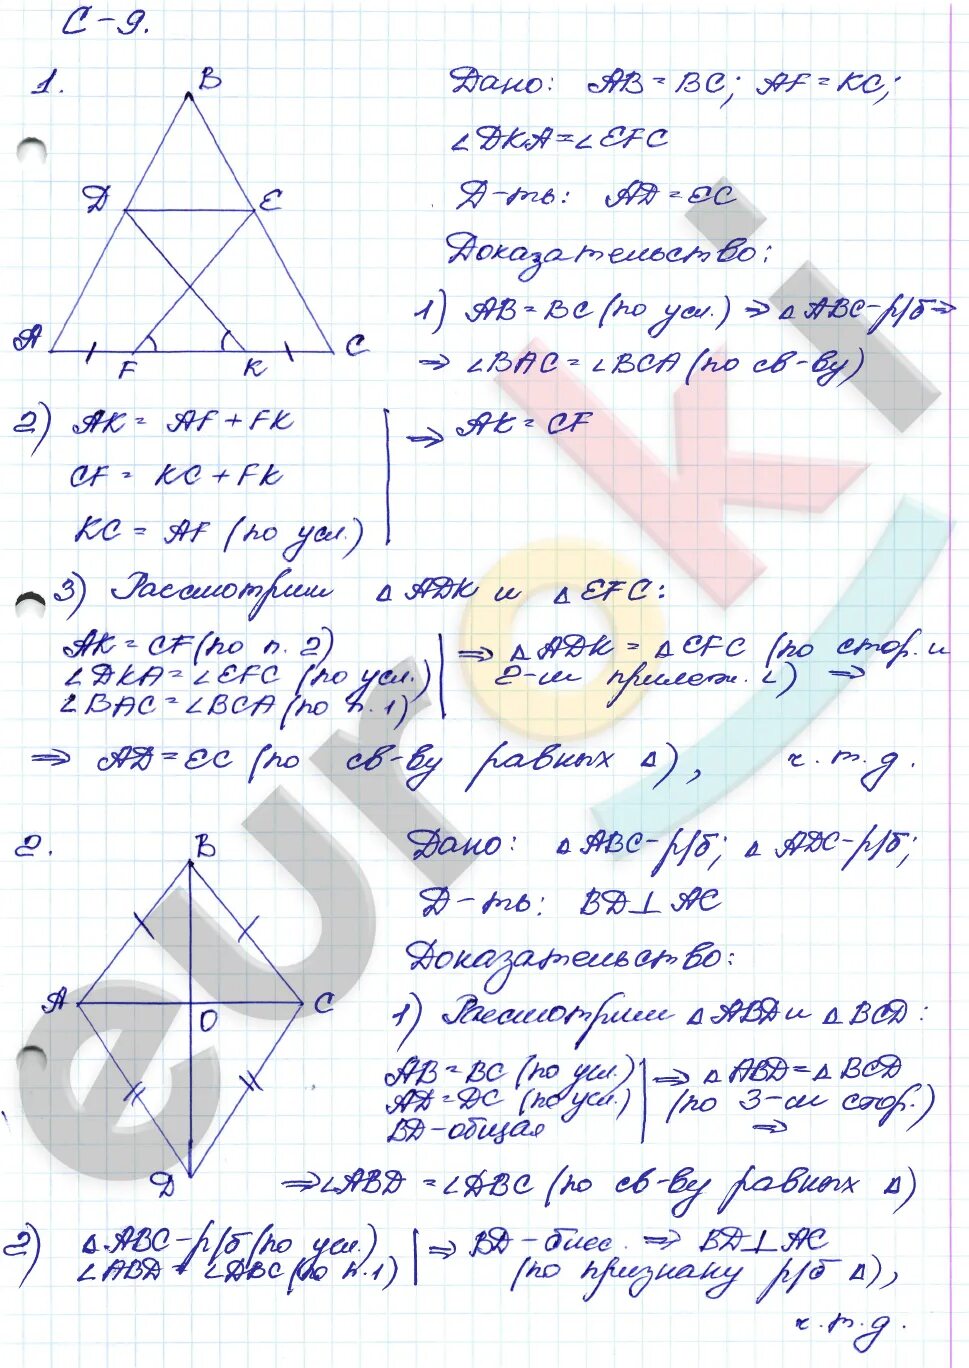 С-9.
1.
B
D
E
A
F
K
C
Дано: AB = BC; AF = KC;
∠DKA = ∠EFC
Д-ть: AD = EC
Доказательство:
1) AB = BC (по усл.) ⇒ △ABC-р/б ⇒
⇒ ∠BAC = ∠BCA (по св-ву)
2) AK = AF + FK
CF = KC + FK
KC = AF (по усл.)
⇒ AK = CF
3) Рассмотрим △ADK и △EFC:
AK = CF (по п. 2)
∠DKA = ∠EFC (по усл.)
∠BAC = ∠BCA (по п. 1)
⇒ △ADK = △EFC (по стор. и
2-м прилеж. ∠) ⇒
⇒ AD = EC (по св-ву равных △), ч.т.д.
2.
B
A
O
C
D
Дано: △ABC-р/б; △ADC-р/б;
Д-ть: BD ⊥ AC
Доказательство:
1) Рассмотрим △ABD и △BCD:
AB = BC (по усл.)
AD = DC (по усл.)
BD-общая
⇒ △ABD = △BCD
(по 3-м стор.)
⇒
⇒ ∠ABD = ∠DBC (по св-ву равных △)
2) △ABC-р/б (по усл.)
∠ABD = ∠DBC (по п. 1)
⇒ BD-бисс. ⇒ BD ⊥ AC
(по признаку р/б △),
ч.т.д.
euroki